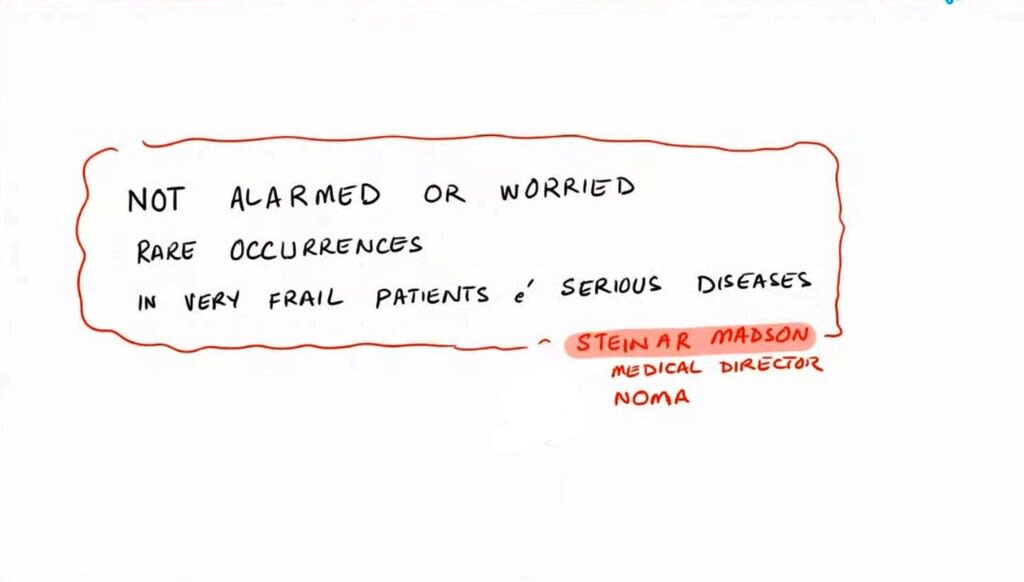 NOT ALARMED OR WORRIED
RARE OCCURRENCES
IN VERY FRAIL PATIENTS é SERIOUS DISEASES
~ STEINAR MADSON
MEDICAL DIRECTOR
NOMA